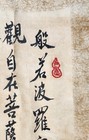 般若波羅
觀自在菩薩